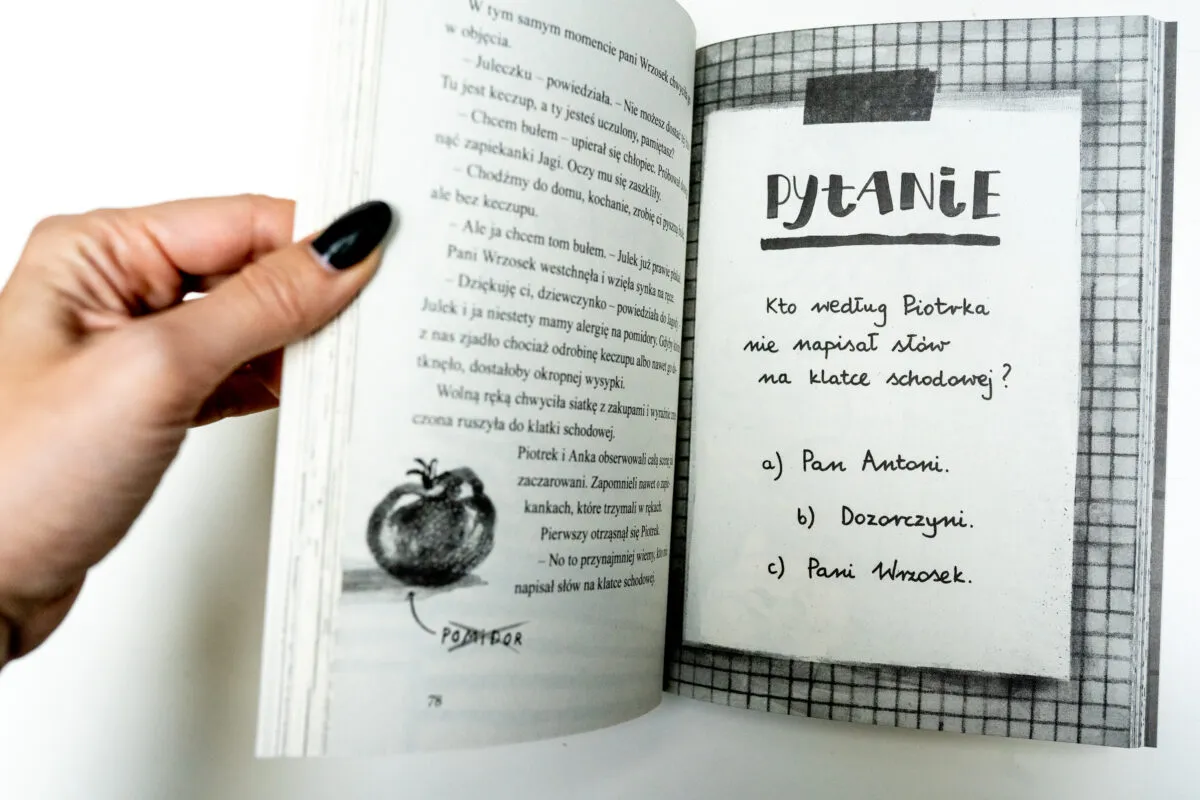 W tym samym momencie pani Wrzosek chwyciła go
w objęcia.
– Juleczku – powiedziała. – Nie możesz dostać tej
Tu jest keczup, a ty jesteś uczulony, pamiętasz?
– Chcem bułem – upierał się chłopiec. Próbował
nąć zapiekanki Jagi. Oczy mu się zaszkliły.
– Chodźmy do domu, kochanie, zrobię ci pyszną
ale bez keczupu.
– Ale ja chcem tom bułem. – Julek już prawie
Pani Wrzosek westchnęła i wzięła synka na ręce.
– Dziękuję ci, dziewczynko – powiedziała do Jagody.
Julek i ja niestety mamy alergię na pomidory. Gdyby
z nas zjadło chociaż odrobinę keczupu albo nawet go do-
tknęło, dostałoby okropnej wysypki.
Wolną ręką chwyciła siatkę z zakupami i wyraźnie
czona ruszyła do klatki schodowej.
Piotrek i Anka obserwowali całą scenę
zaczarowani. Zapomnieli nawet o zapie-
kankach, które trzymali w rękach.
Pierwszy otrząsnął się Piotrek.
– No to przynajmniej wiemy, kto nie
napisał słów na klatce schodowej.
POMIDOR
78
PYTANIE
Kto według Piotrka
nie napisał słów
na klatce schodowej?
a) Pan Antoni.
b) Dozorczyni.
c) Pani Wrzosek.